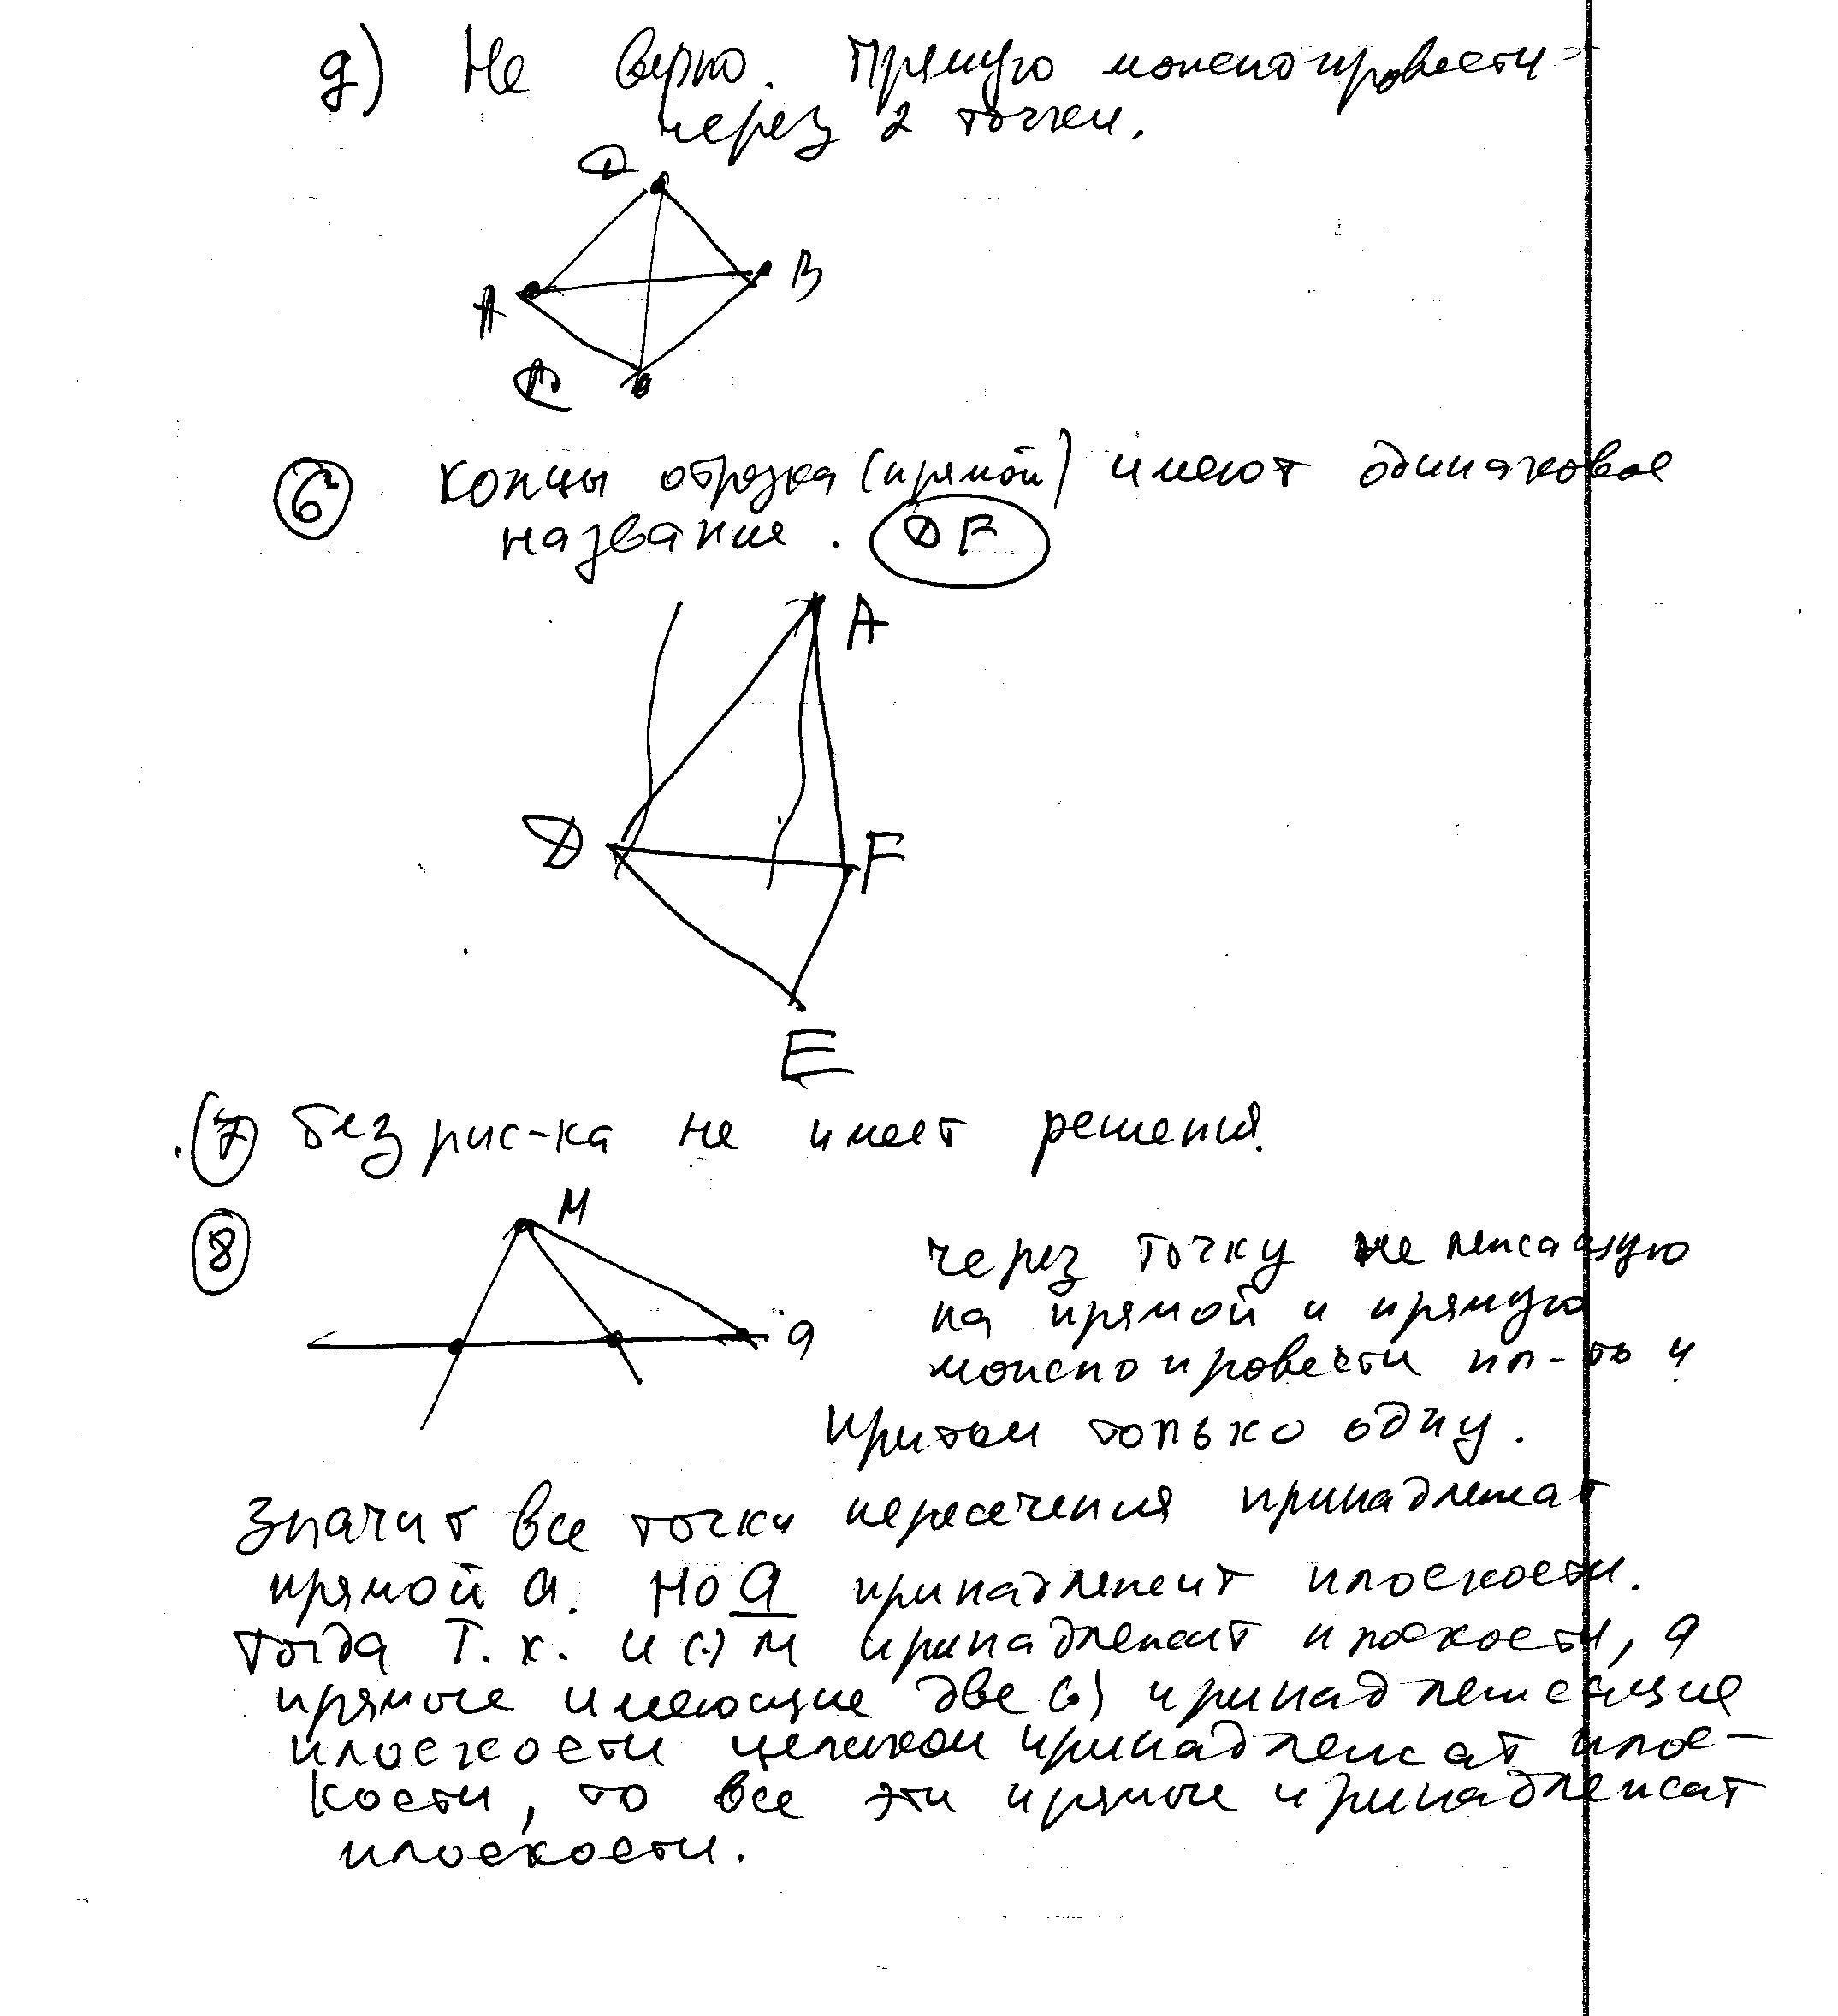 д) Не верно. Прямую можно провести
через 2 точки.
D
B
A
C
6 Концы отрезка (прямой) имеют одинаковое
название. DF
A
D F
E
7 без рис-ка не имеет решения.
8 M
a
через точку не лежащую
на прямой и прямую
можно провести пл-ть и
притом только одну.
Значит все точки пересечения принадлежат
прямой a. Но a принадлежит плоскости.
Тогда т.к. и (.) M принадлежит плоскости, а
прямые имеющие две (.) принадлежащие
плоскости целиком принадлежат плос-
кости, то все эти прямые принадлежат
плоскости.